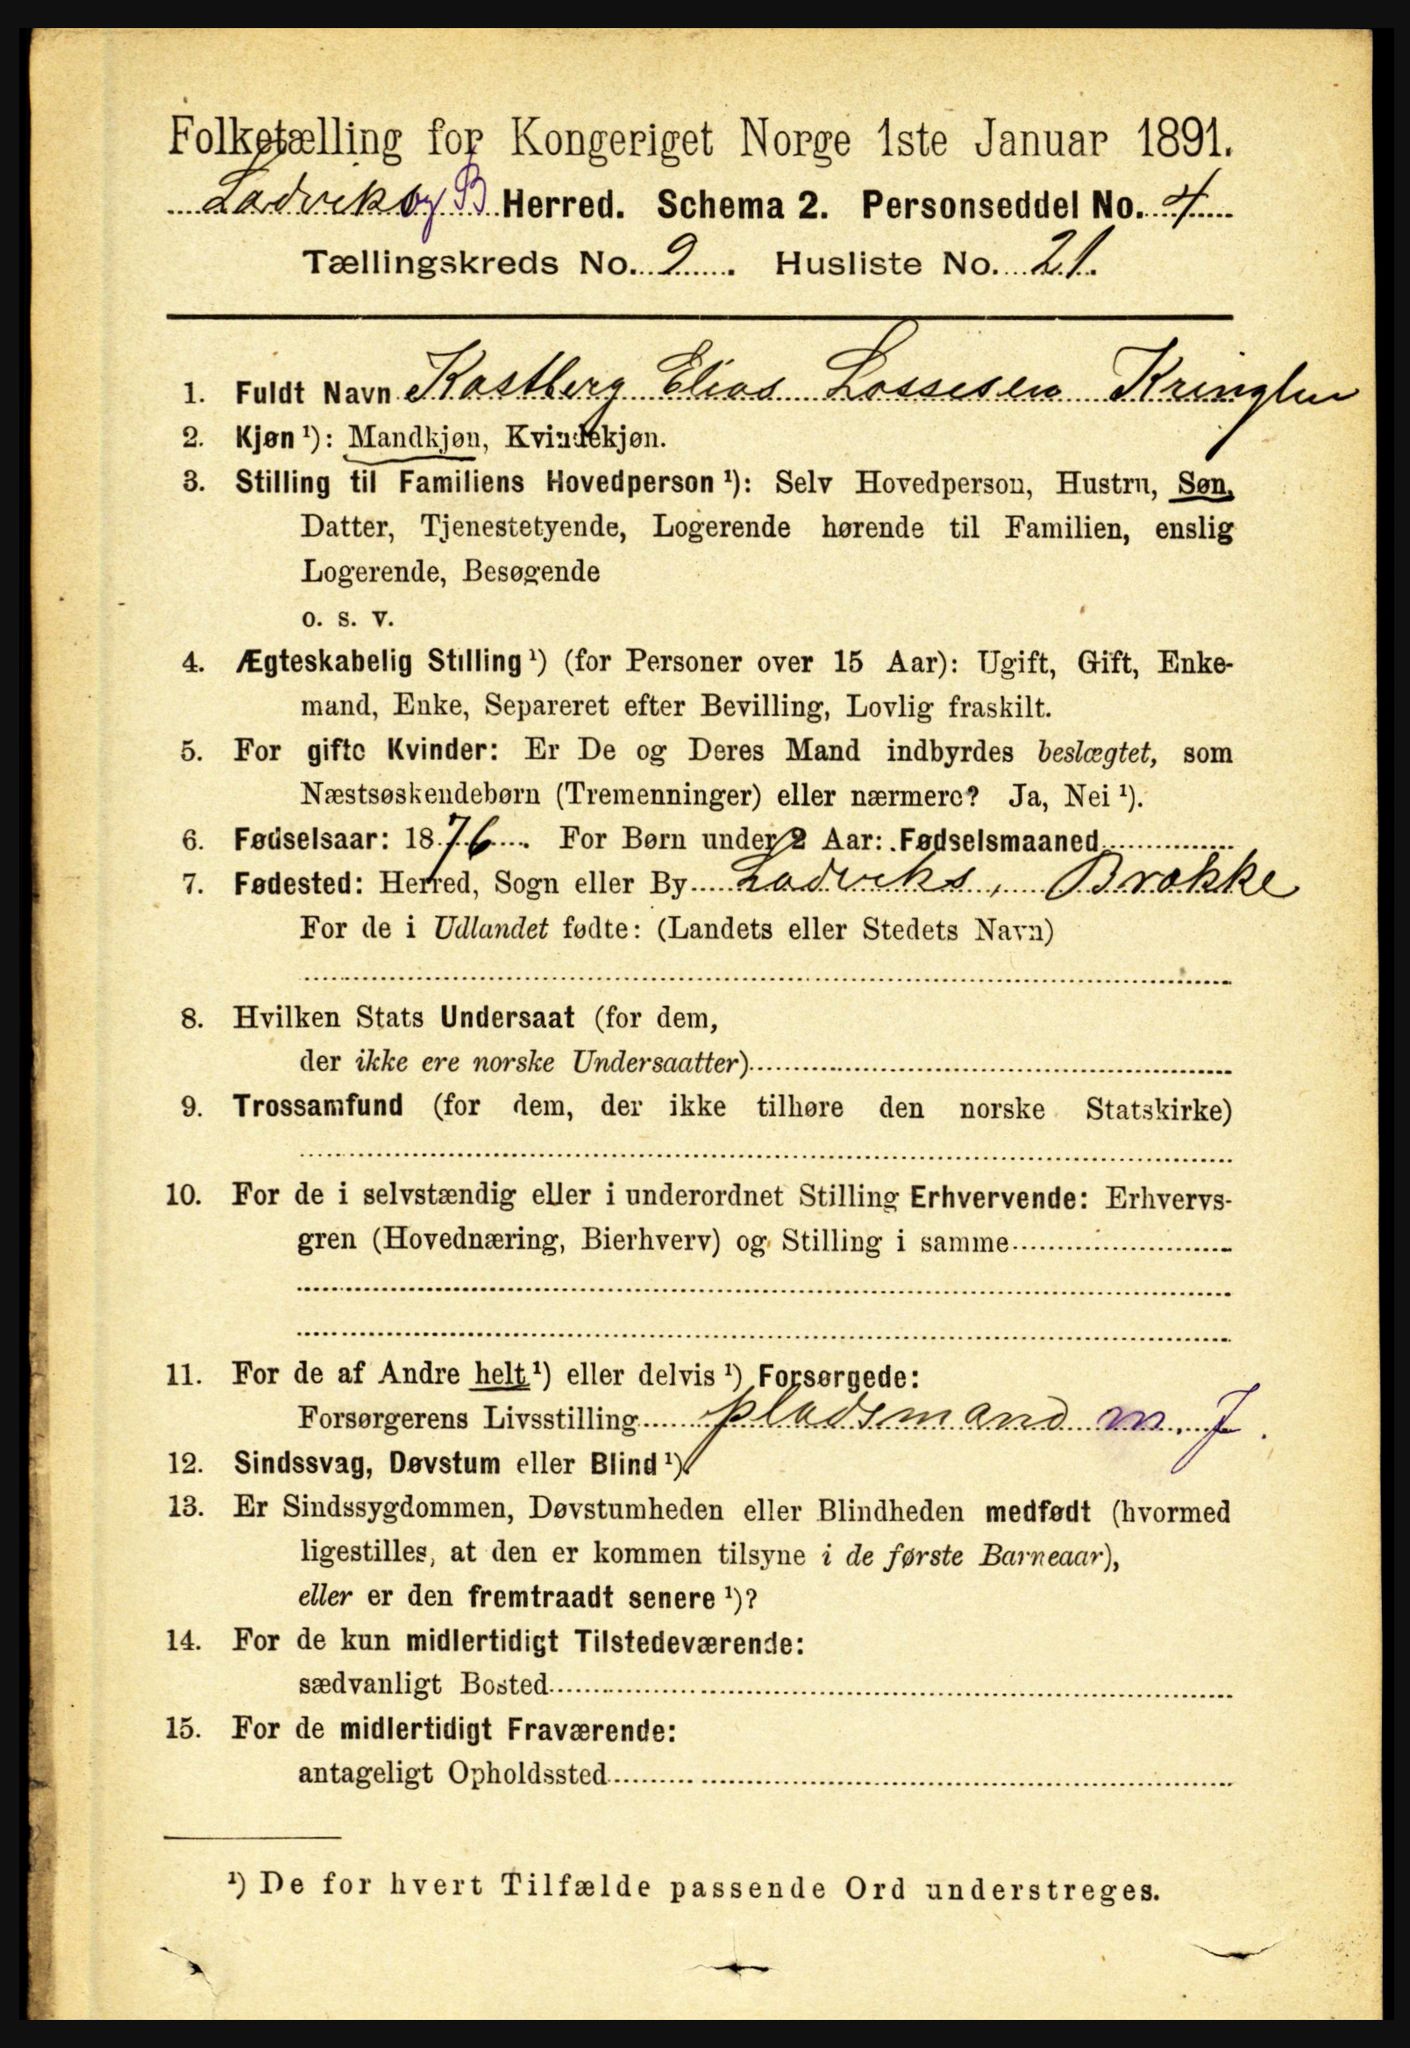 Folketælling for Kongeriget Norge 1ste Januar 1891.
Ladviks og B Herred. Schema 2. Personseddel No. 4
Tællingskreds No. 2. Husliste No. 21.
1. Fuldt Navn Kastberg Elias Lassesen Kringlen
2. Kjøn ¹): Mandkjøn, Kvindekjøn.
3. Stilling til Familiens Hovedperson ¹): Selv Hovedperson, Hustru, Søn,
Datter, Tjenestetyende, Logerende hørende til Familien, enslig
Logerende, Besøgende
o. s. v.
4. Ægteskabelig Stilling ¹) (for Personer over 15 Aar): Ugift, Gift, Enke-
mand, Enke, Separeret efter Bevilling, Lovlig fraskilt.
5. For gifte Kvinder: Er De og Deres Mand indbyrdes beslægtet, som
Næstsøskendebørn (Tremenninger) eller nærmere? Ja, Nei ¹).
6. Fødselsaar: 1876. For Børn under 2 Aar: Fødselsmaaned
7. Fødested: Herred, Sogn eller By Ladviks, Brække
For de i Udlandet fødte: (Landets eller Stedets Navn)
8. Hvilken Stats Undersaat (for dem,
der ikke ere norske Undersaatter)
9. Trossamfund (for dem, der ikke tilhøre den norske Statskirke)
10. For de i selvstændig eller i underordnet Stilling Erhvervende: Erhvervs-
gren (Hovednæring, Bierhverv) og Stilling i samme
11. For de af Andre helt ¹) eller delvis ¹) Forsørgede:
Forsørgerens Livsstilling pladsmand m. J.
12. Sindssvag, Døvstum eller Blind ¹).
13. Er Sindssygdommen, Døvstumheden eller Blindheden medfødt (hvormed
ligestilles, at den er kommen tilsyne i de første Barneaar),
eller er den fremtraadt senere ¹)?
14. For de kun midlertidigt Tilstedeværende:
sædvanligt Bosted
15. For de midlertidigt Fraværende:
antageligt Opholdssted
¹) De for hvert Tilfælde passende Ord understreges.